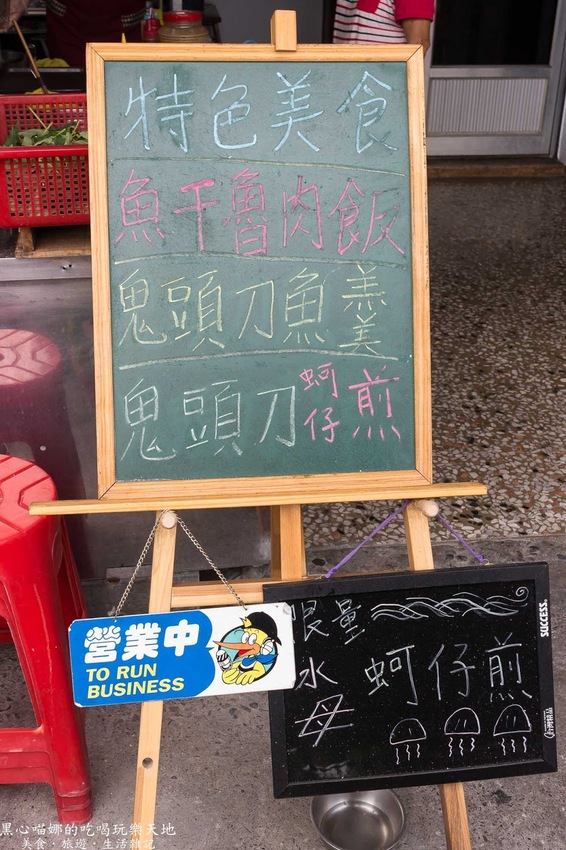 特色美食
魚干魯肉飯
鬼頭刀魚羹
鬼頭刀蚵仔煎
營業中
TO RUN
BUSINESS
限量
水母
蚵仔煎
SUCCESS.
黑心喵娜的吃喝玩樂天地
美食・旅遊・生活雜記